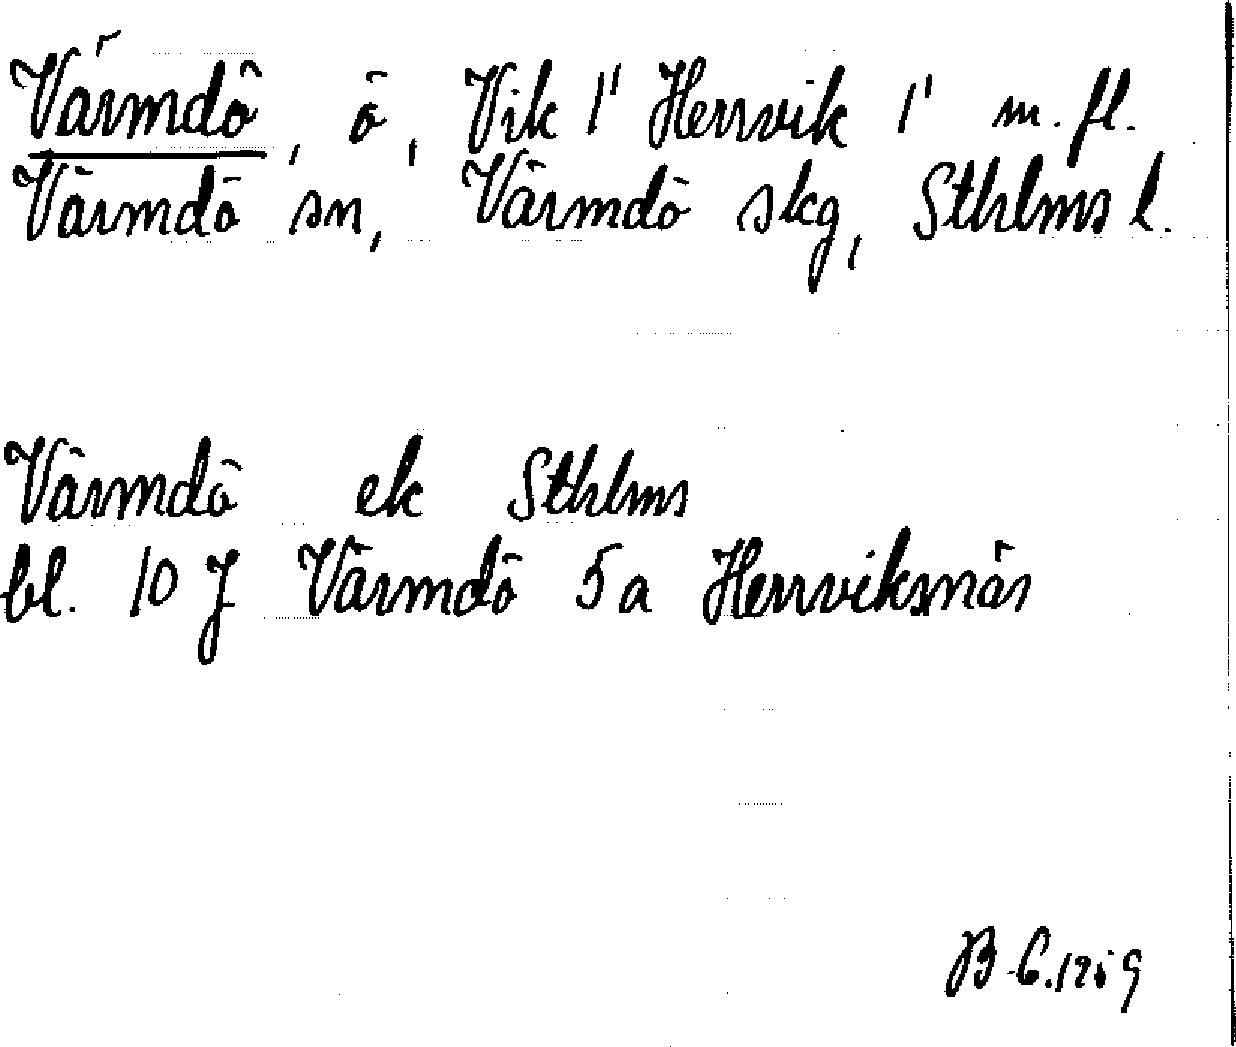 Värmdö, ö, Vik 1¹ Herrvik 1¹ m. fl.
Värmdö sn, Värmdö skg, Sthlms l.
Värmdö ek Sthlms
bl. 10 J Värmdö 5 a Herrviksnäs